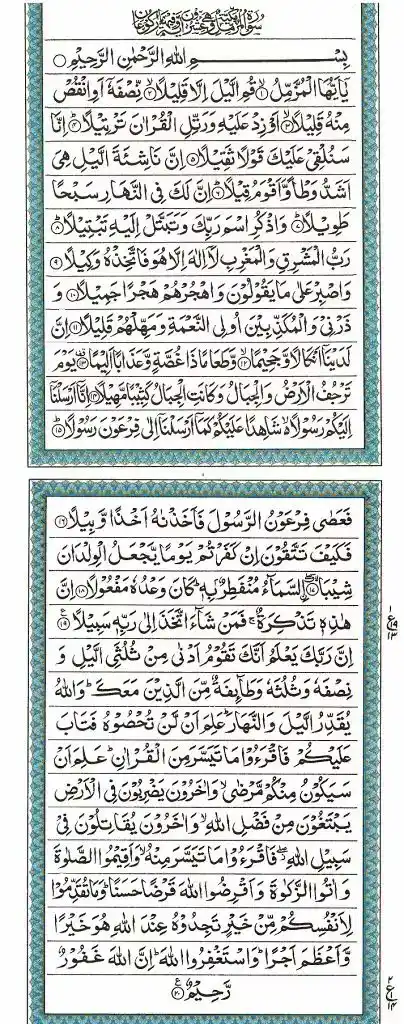 سُوْرَةُ الْمُزَّمِّلِ مَكِّيَّةٌ وَّهِيَ عِشْرُوْنَ اٰيَةً وَّفِيْهَا رُكُوْعَانِ
بِسْمِ اللهِ الرَّحْمٰنِ الرَّحِيْمِ
يٰۤاَيُّهَا الْمُزَّمِّلُ ۙ﴿۱﴾ قُمِ الَّيْلَ اِلَّا قَلِيْلًا ۙ﴿۲﴾ نِّصْفَهٗۤ اَوِ انْقُصْ
مِنْهُ قَلِيْلًا ۙ﴿۳﴾ اَوْ زِدْ عَلَيْهِ وَرَتِّلِ الْقُرْاٰنَ تَرْتِيْلًا ؕ﴿۴﴾ اِنَّا
سَنُلْقِيْ عَلَيْكَ قَوْلًا ثَقِيْلًا ﴿۵﴾ اِنَّ نَاشِئَةَ الَّيْلِ هِيَ
اَشَدُّ وَطْاً وَّاَقْوَمُ قِيْلًا ؕ﴿۶﴾ اِنَّ لَكَ فِي النَّهَارِ سَبْحًا
طَوِيْلًا ؕ﴿۷﴾ وَاذْكُرِ اسْمَ رَبِّكَ وَتَبَتَّلْ اِلَيْهِ تَبْتِيْلًا ؕ﴿۸﴾
رَبُّ الْمَشْرِقِ وَالْمَغْرِبِ لَاۤ اِلٰهَ اِلَّا هُوَ فَاتَّخِذْهُ وَكِيْلًا ﴿۹﴾
وَاصْبِرْ عَلٰى مَا يَقُوْلُوْنَ وَاهْجُرْهُمْ هَجْرًا جَمِيْلًا ﴿۱۰﴾ وَ
ذَرْنِيْ وَالْمُكَذِّبِيْنَ اُولِي النَّعْمَةِ وَمَهِّلْهُمْ قَلِيْلًا ﴿۱۱﴾ اِنَّ
لَدَيْنَاۤ اَنْكَالًا وَّجَحِيْمًا ۙ﴿۱۲﴾ وَّطَعَامًا ذَا غُصَّةٍ وَّعَذَابًا اَلِيْمًا ﴿۱۳﴾ يَوْمَ
تَرْجُفُ الْاَرْضُ وَالْجِبَالُ وَكَانَتِ الْجِبَالُ كَثِيْبًا مَّهِيْلًا ﴿۱۴﴾ اِنَّاۤ اَرْسَلْنَاۤ
اِلَيْكُمْ رَسُوْلًا ۙ شَاهِدًا عَلَيْكُمْ كَمَاۤ اَرْسَلْنَاۤ اِلٰى فِرْعَوْنَ رَسُوْلًا ؕ﴿۱۵﴾
فَعَصٰى فِرْعَوْنُ الرَّسُوْلَ فَاَخَذْنٰهُ اَخْذًا وَّبِيْلًا ﴿۱۶﴾
فَكَيْفَ تَتَّقُوْنَ اِنْ كَفَرْتُمْ يَوْمًا يَّجْعَلُ الْوِلْدَانَ
شِيْبَا ۖ﴿۱۷﴾ السَّمَآءُ مُنْفَطِرٌۢ بِهٖ ؕ كَانَ وَعْدُهٗ مَفْعُوْلًا ﴿۱۸﴾ اِنَّ
هٰذِهٖ تَذْكِرَةٌ ۚ فَمَنْ شَآءَ اتَّخَذَ اِلٰى رَبِّهٖ سَبِيْلًا ﴿۱۹﴾ ع
اِنَّ رَبَّكَ يَعْلَمُ اَنَّكَ تَقُوْمُ اَدْنٰى مِنْ ثُلُثَيِ الَّيْلِ وَ
نِصْفَهٗ وَثُلُثَهٗ وَطَآئِفَةٌ مِّنَ الَّذِيْنَ مَعَكَ ؕ وَاللهُ
يُقَدِّرُ الَّيْلَ وَالنَّهَارَ ؕ عَلِمَ اَنْ لَّنْ تُحْصُوْهُ فَتَابَ
عَلَيْكُمْ فَاقْرَءُوْا مَا تَيَسَّرَ مِنَ الْقُرْاٰنِ ؕ عَلِمَ اَنْ
سَيَكُوْنُ مِنْكُمْ مَّرْضٰى ۙ وَاٰخَرُوْنَ يَضْرِبُوْنَ فِي الْاَرْضِ
يَبْتَغُوْنَ مِنْ فَضْلِ اللهِ ۙ وَاٰخَرُوْنَ يُقَاتِلُوْنَ فِيْ
سَبِيْلِ اللهِ ۖ فَاقْرَءُوْا مَا تَيَسَّرَ مِنْهُ ۙ وَاَقِيْمُوا الصَّلٰوةَ
وَاٰتُوا الزَّكٰوةَ وَاَقْرِضُوا اللهَ قَرْضًا حَسَنًا ؕ وَمَا تُقَدِّمُوْا
لِاَنْفُسِكُمْ مِّنْ خَيْرٍ تَجِدُوْهُ عِنْدَ اللهِ هُوَ خَيْرًا
وَّاَعْظَمَ اَجْرًا ؕ وَاسْتَغْفِرُوا اللهَ ؕ اِنَّ اللهَ غَفُوْرٌ
رَّحِيْمٌ ﴿۲۰﴾ ع